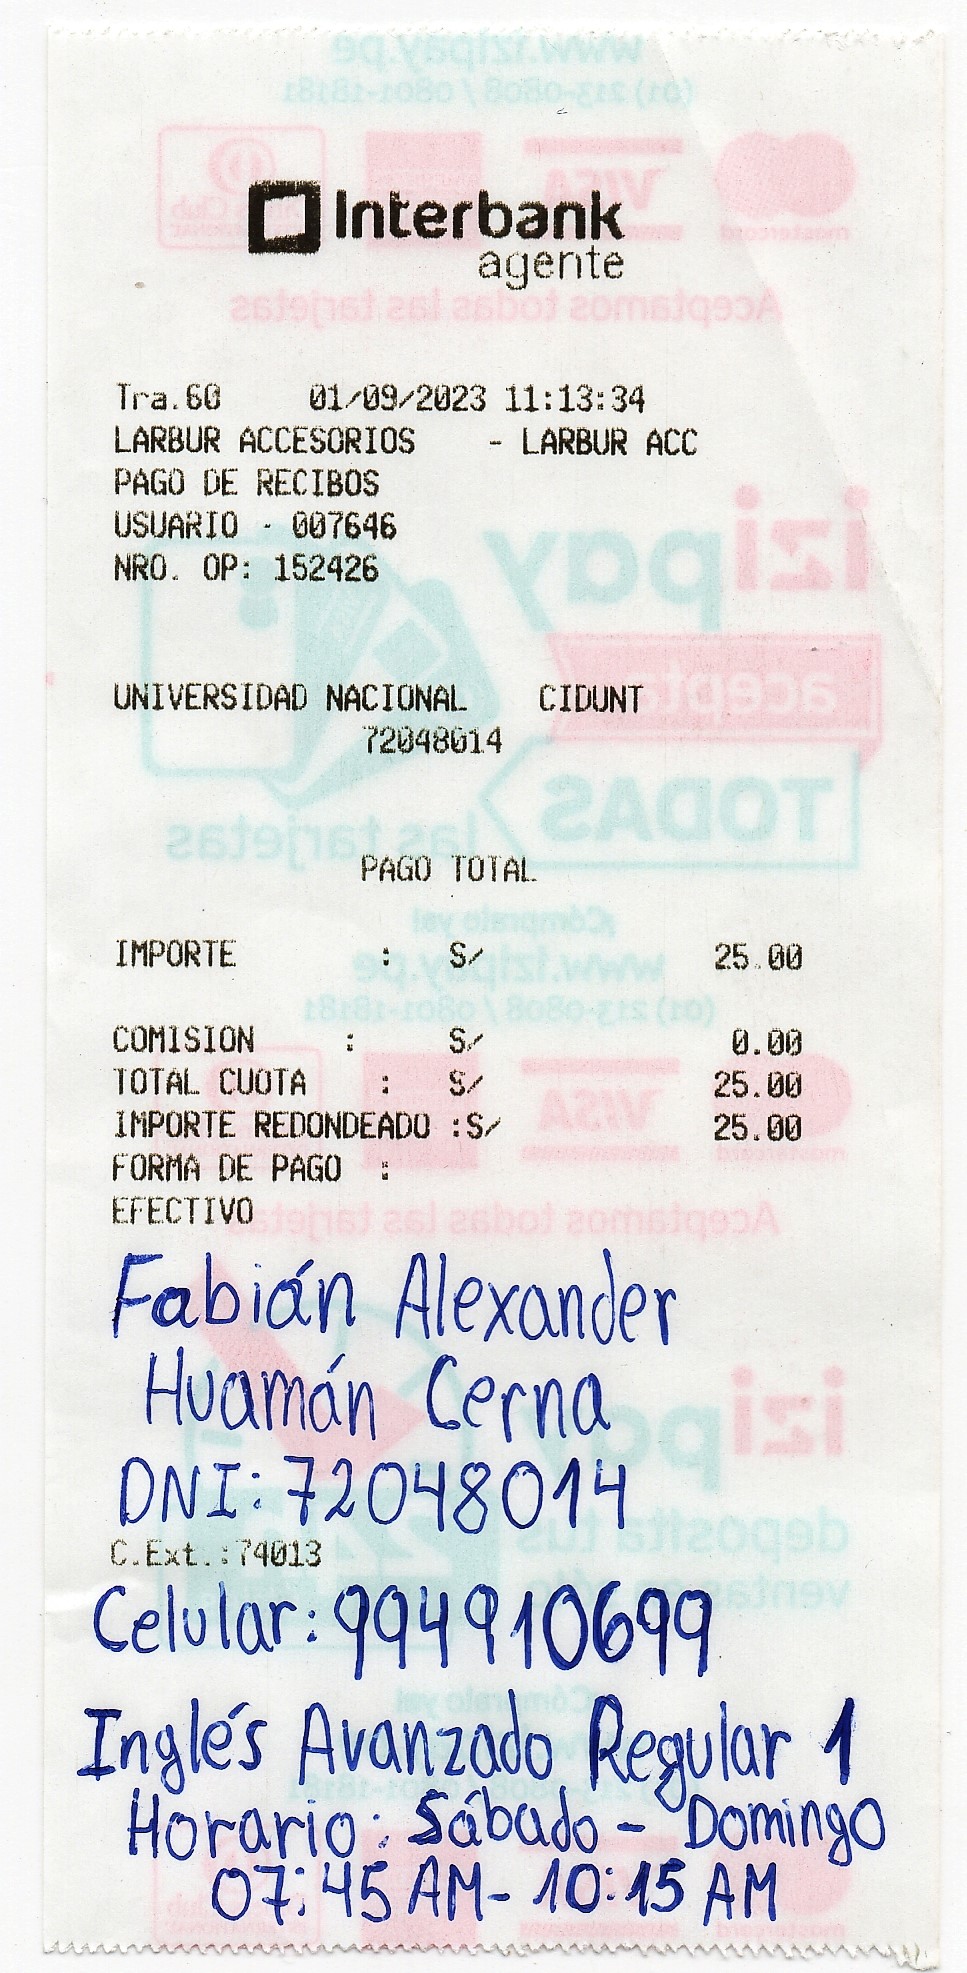 Interbank
agente
Tra.60 01/09/2023 11:13:34
LARBUR ACCESORIOS - LARBUR ACC
PAGO DE RECIBOS
USUARIO - 007646
NRO. OP: 152426
UNIVERSIDAD NACIONAL CIDUNT
72048014
PAGO TOTAL
IMPORTE : S/ 25.00
COMISION : S/ 0.00
TOTAL CUOTA : S/ 25.00
IMPORTE REDONDEADO :S/ 25.00
FORMA DE PAGO :
EFECTIVO
Fabián Alexander
Huamán Cerna
DNI: 72048014
C.Ext.:74013
Celular: 994910699
Inglés Avanzado Regular 1
Horario: Sábado - Domingo
07:45 AM- 10:15 AM